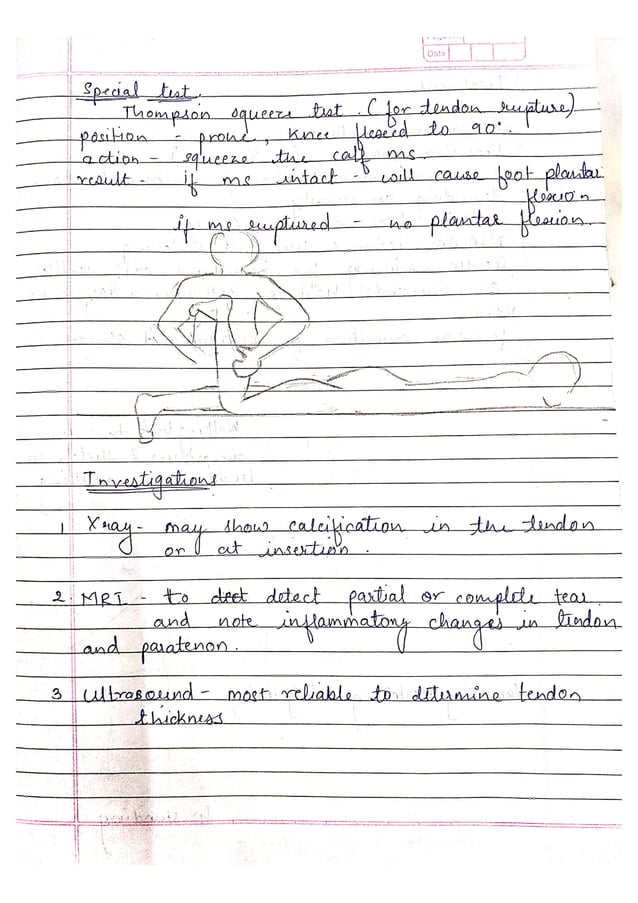 Date
Special test.
Thompson squeeze test. (for tendon rupture)
position - prone, knee flexed to 90°.
action - squeeze the calf ms.
result - if ms intact - will cause foot plantar
flexion
if ms ruptured - no plantar flexion.
Investigations
1 X-ray - may show calcification in the tendon
or at insertion.
2. MRI - to detect partial or complete tear
and note inflammatory changes in tendon
and paratenon.
3 Ultrasound - most reliable to determine tendon
thickness